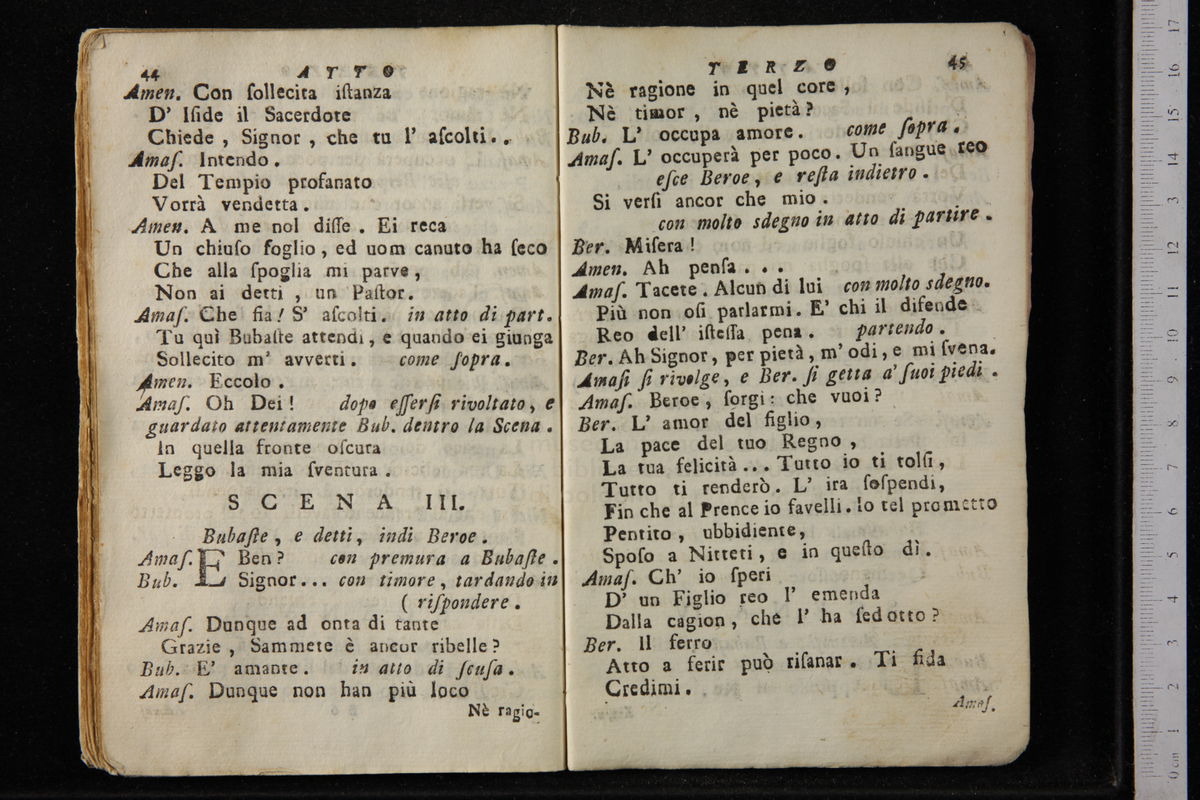 44 ATTO
Amen. Con ſollecita iſtanza
D' Iſide il Sacerdote
Chiede , Signor , che tu l' aſcolti . .
Amaſ. Intendo .
Del Tempio profanato
Vorrà vendetta .
Amen. A me nol diſſe . Ei reca
Un chiuſo foglio , ed uom canuto ha ſeco
Che alla ſpoglia mi parve ,
Non ai detti , un Paſtor .
Amaſ. Che fia ! S' aſcolti . in atto di part.
Tu quì Bubaſte attendi , e quando ei giunga
Sollecito m' avverti . come ſopra .
Amen. Eccolo .
Amaſ. Oh Dei ! dopo eſſerſi rivoltato , e
guardato attentamente Bub. dentro la Scena .
In quella fronte oſcura
Leggo la mia ſventura .
SCENA III.
Bubaſte , e detti , indi Beroe .
Amaſ. E Ben ? con premura a Bubaſte .
Bub. Signor... con timore , tardando in
( riſpondere .
Amaſ. Dunque ad onta di tante
Grazie , Sammete è ancor ribelle ?
Bub. E' amante . in atto di ſcuſa .
Amaſ. Dunque non han più loco
Nè ragio-
TERZO 45
Nè ragione in quel core ,
Nè timor , nè pietà ?
Bub. L' occupa amore . come ſopra .
Amaſ. L' occuperà per poco . Un ſangue reo
eſce Beroe , e reſta indietro .
Si verſi ancor che mio .
con molto sdegno in atto di partire .
Ber. Miſera !
Amen. Ah penſa . . .
Amaſ. Tacete . Alcun di lui con molto sdegno.
Più non oſi parlarmi . E' chi il difende
Reo dell' iſteſſa pena . partendo .
Ber. Ah Signor , per pietà , m' odi , e mi ſvena.
Amaſi ſi rivolge , e Ber. ſi getta a' ſuoi piedi .
Amaſ. Beroe , ſorgi : che vuoi ?
Ber. L' amor del figlio ,
La pace del tuo Regno ,
La tua felicità ... Tutto io ti tolſi ,
Tutto ti renderò . L' ira ſoſpendi ,
Fin che al Prence io favelli . Io tel prometto
Pentito , ubbidiente ,
Spoſo a Nitteti , e in queſto dì .
Amaſ. Ch' io ſperi
D' un Figlio reo l' emenda
Dalla cagion , che l' ha ſedotto ?
Ber. Il ferro
Atto a ferir può riſanar . Ti fida
Credimi .
Amaſ.
17
16
15
14
13
12
11
10
9
8
7
6
5
4
3
2
1
0 cm